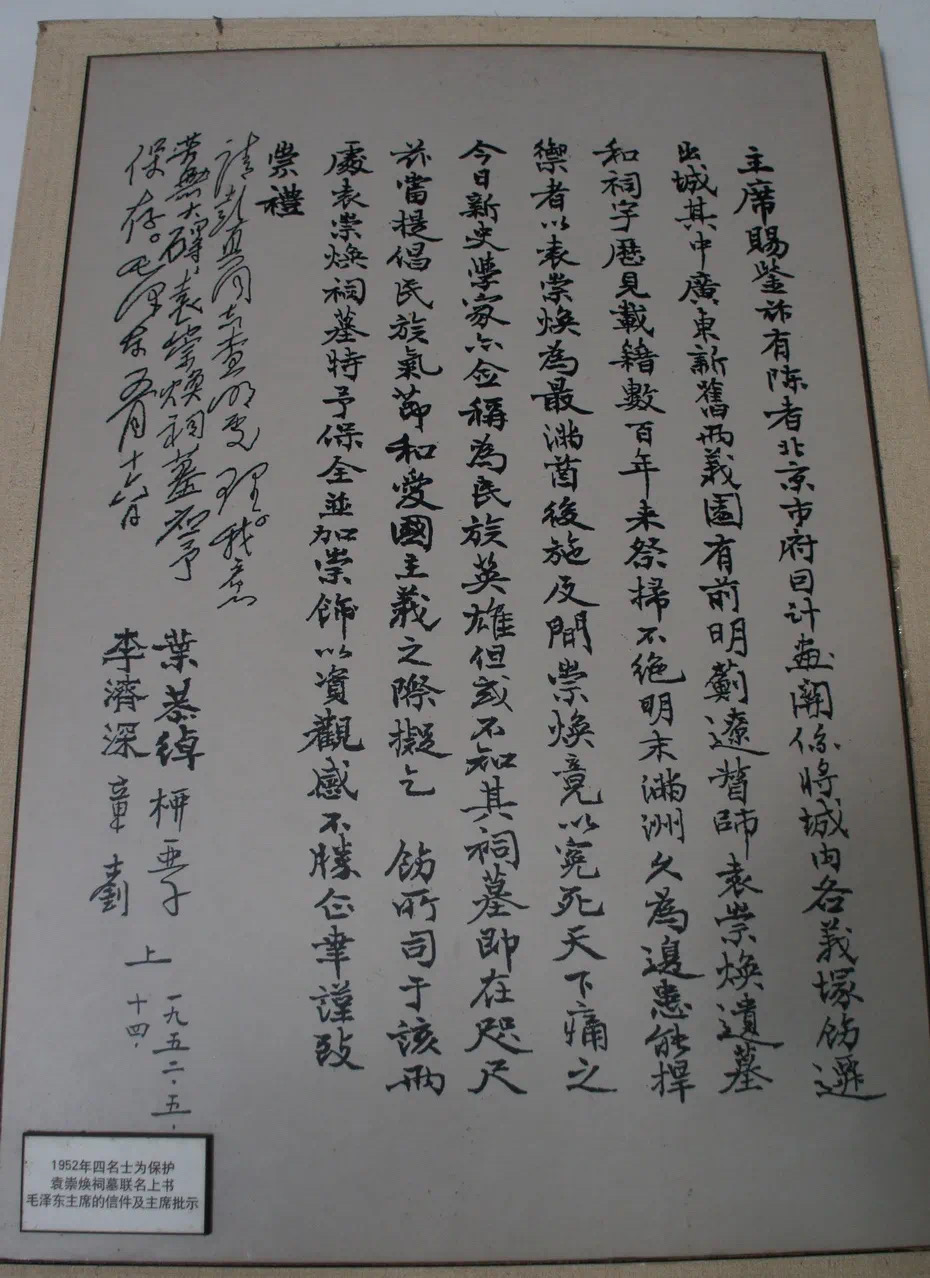 主席賜鉴玆有陈者北京市府因计画關係将城内各義塚饬遷
出城其中廣東新舊兩義園有前明薊遼督師袁崇焕遺墓
和祠宇歷見載籍數百年来祭掃不绝明末满洲久為邊患能捍
禦者以袁崇焕為最满酋後施反間崇焕竟以冤死天下痛之
今日新史學家亦佥稱為民族英雄但或不知其祠墓即在咫尺
玆當提倡民族氣節和愛國主義之際擬乞 饬所司于该兩
處袁崇焕祠墓特予保全並加崇飾以資觀感不勝企幸謹致
崇禮
葉恭绰 柳亚子
李濟深 章士釗 上
一九五二·五·
十四·
请彭真同志查明处理。我意
若無大碍，袁崇焕祠墓应予
保存。毛泽东 五月十六日
1952年四名士为保护
袁崇焕祠墓联名上书
毛泽东主席的信件及主席批示